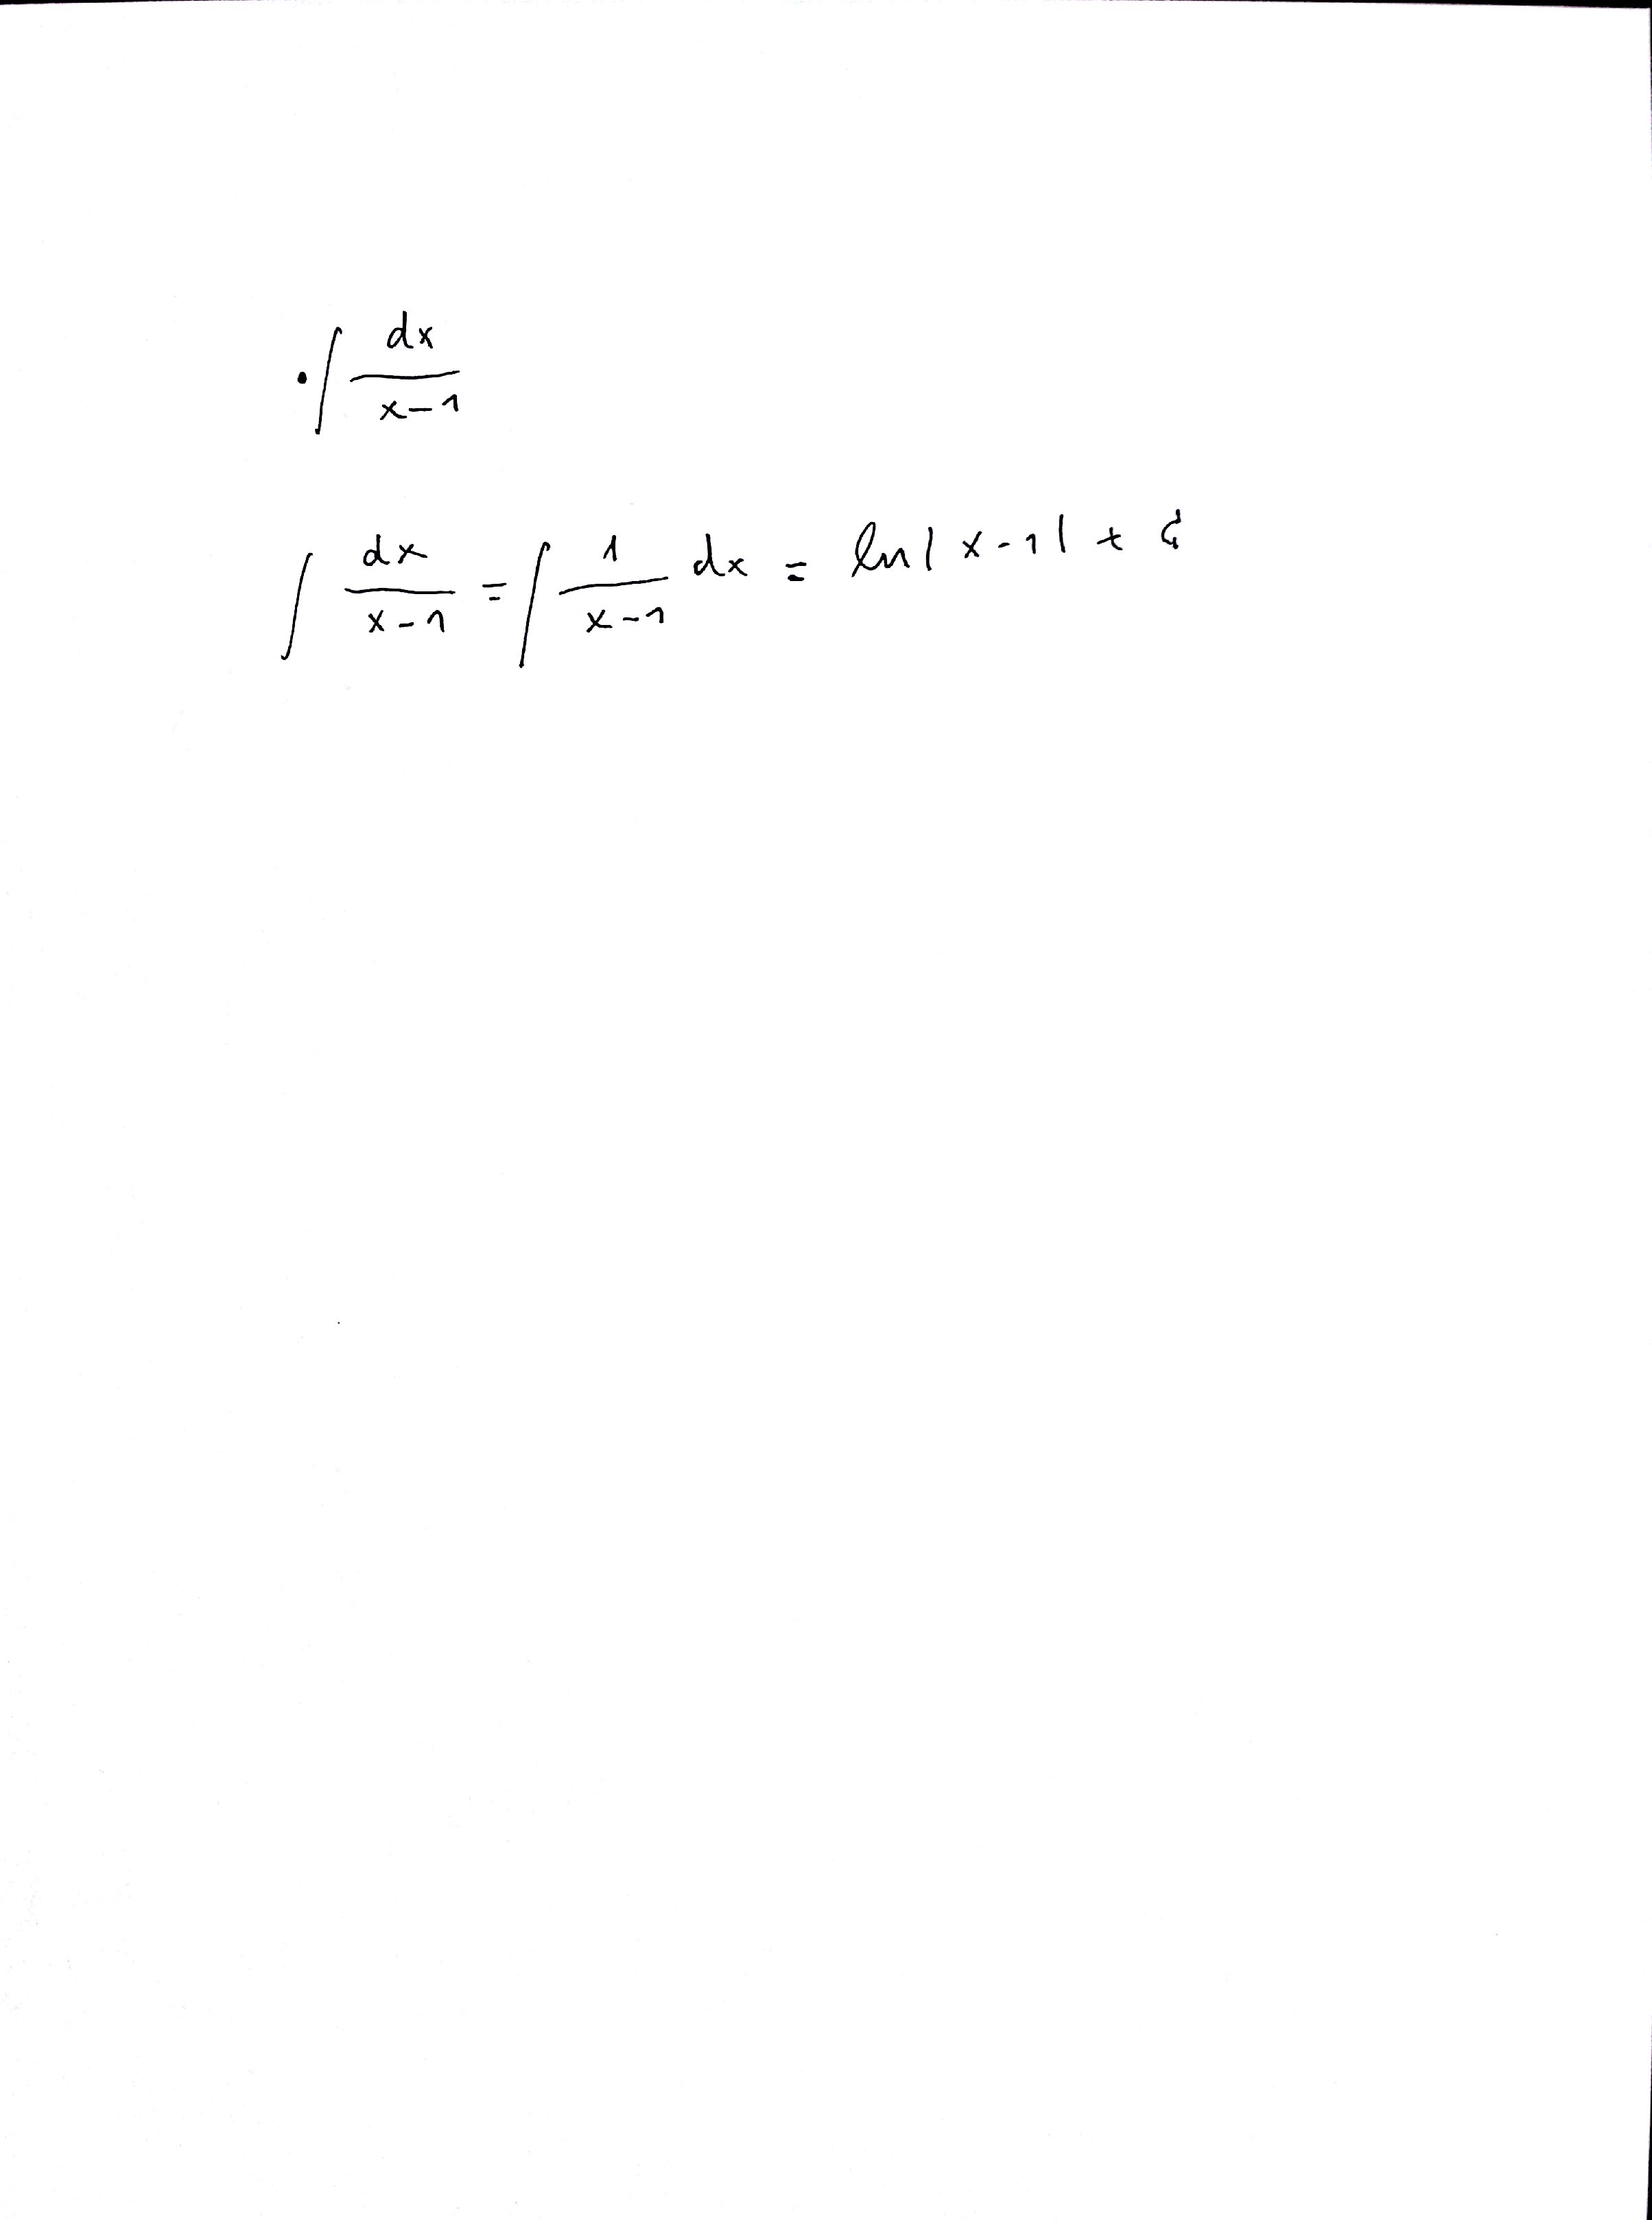 • ∫ dx/(x-1)
∫ dx/(x-1) = ∫ 1/(x-1) dx = ln|x-1| + C